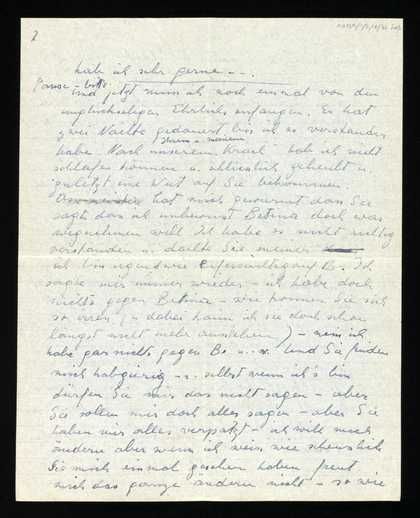 2
habe ich sehr gerne – – .
Pause – bitte
und jetzt muss ich noch einmal von der
unglückseligen Ehrlich. anfangen. Es hat
zwei Nächte gedauert bis ich es verstanden
habe. Nach unserem " " hab ich nicht
schlafen können u. schliesslich geheult u.
zuletzt eine Wut auf Sie bekommen.
hat mich gewurmt dass Sie
sagten dass ich unbewusst Betina doch was
wegnehmen will. Ich habe es nicht richtig
verstanden u. dachte Sie meinen
ich bin irgendwie eifersüchtig auf B. Ich
sagte mir immer wieder – ich habe doch
nichts gegen Betina – wie können Sie sich
so irren (u. dabei kann ich sie doch schon
längst nicht mehr ausstehen) – nein ich
habe gar nichts gegen B. u. s. w. Und Sie finden
mich habgierig – .. selbst wenn ich's bin
dürfen Sie mir das nicht sagen – aber
Sie sollen mir doch alles sagen – aber Sie
haben mir alles verpatzt – ich will mich
ändern aber wenn ich weiss wie scheusslich
Sie mich einmal gesehen haben freut
mich das ganze ändern nicht – so wie